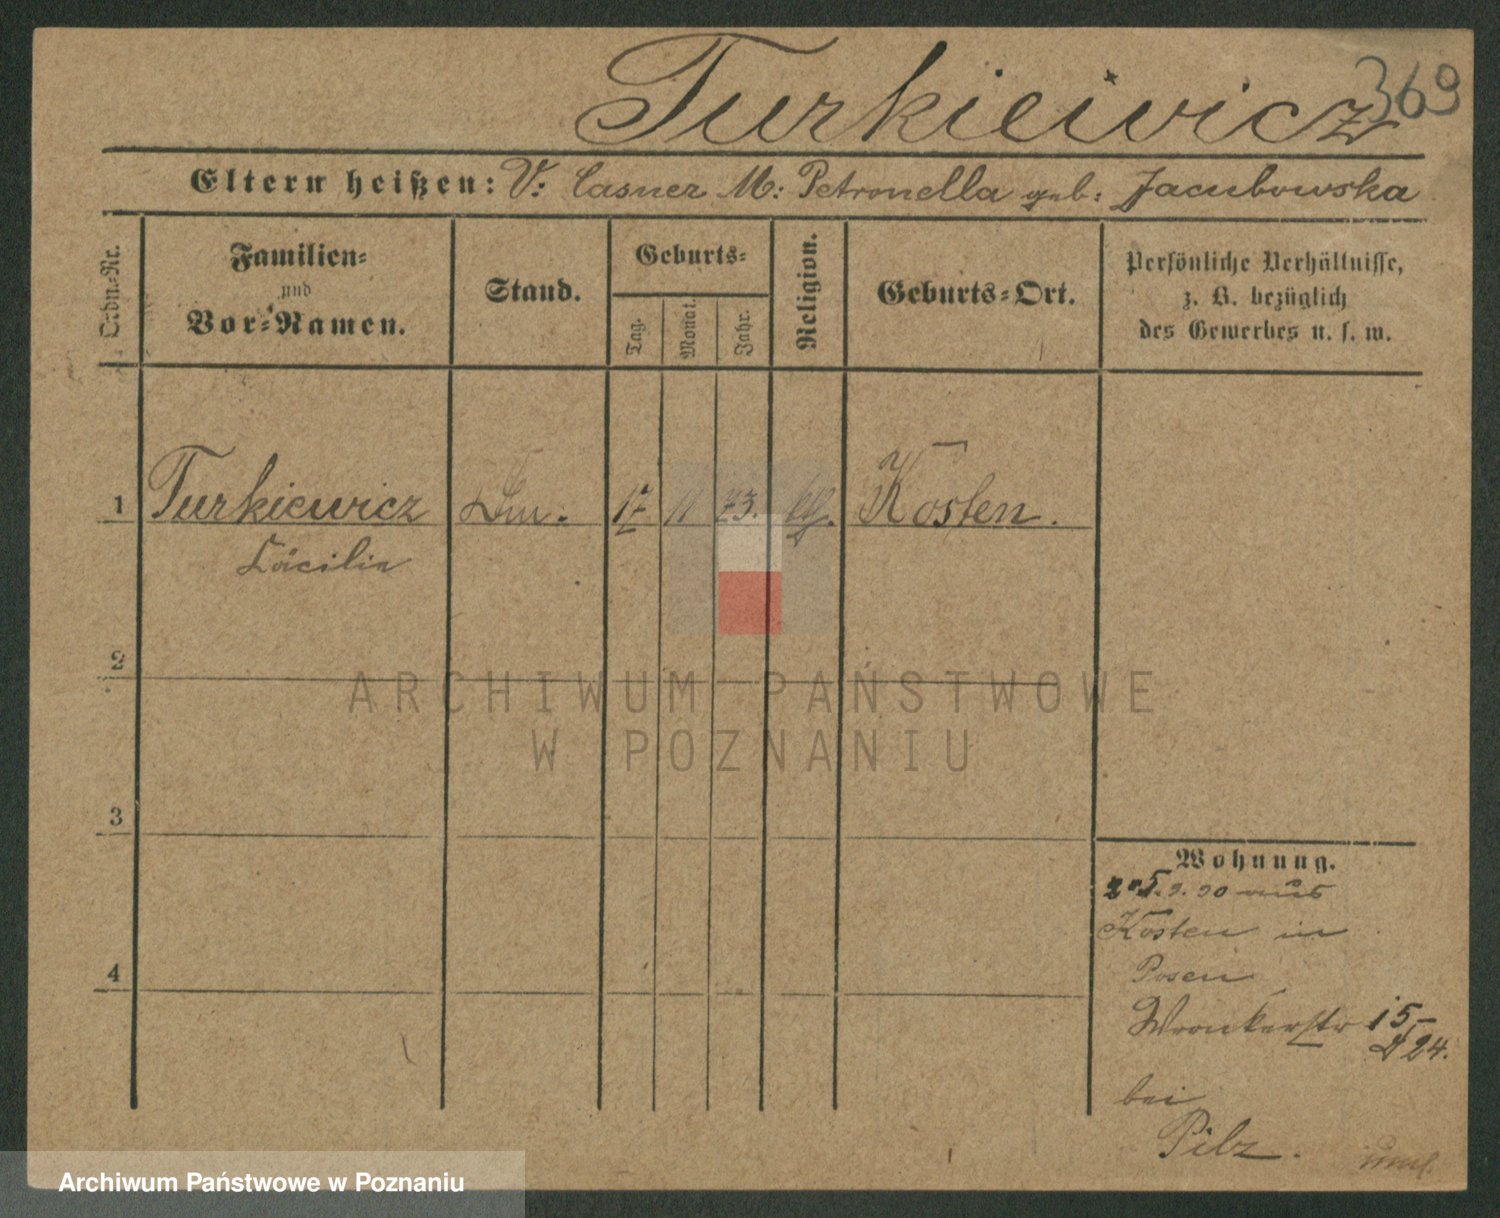 369
Turkieiwicz
Eltern heißen: V: Casner M: Petronella geb: Jacubowska
Ordn.-Nr.
Familien-
und
Vor-Namen.
Stand.
Geburts-
Tag.
Monat.
Jahr.
Religion.
Geburts-Ort.
Persönliche Verhältnisse,
z. B. bezüglich
des Gewerbes u. s. w.
1 Turkiewicz 17 11 73. Kosten.
Cäcilie
2
3
4
Wohnung.
9. 90 aus
Kosten in
Posen
Wronkerstr 15
24.
bei
Pilz.
ARCHIWUM PAŃSTWOWE
W POZNANIU
Archiwum Państwowe w Poznaniu